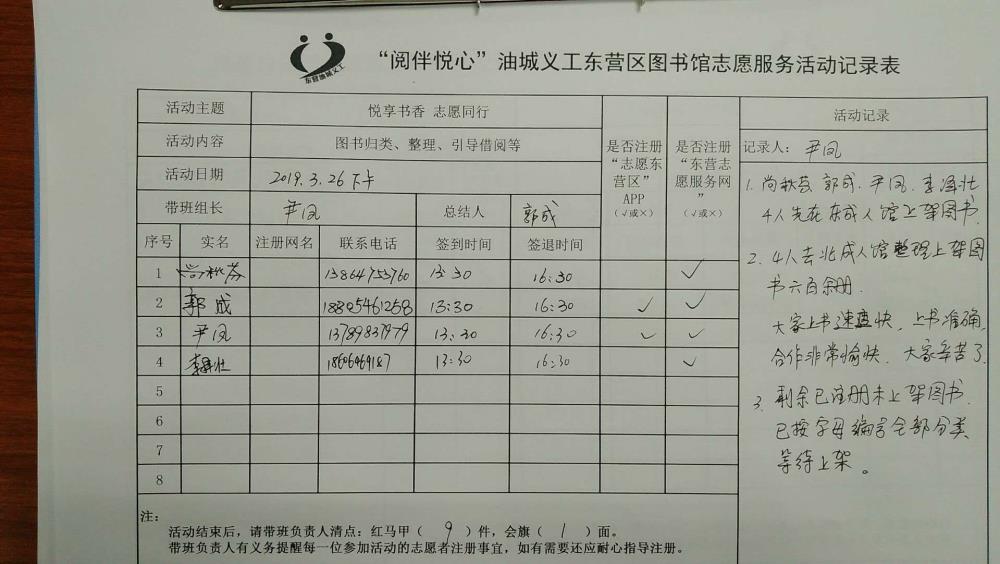 东营油城义工
“阅伴悦心”油城义工东营区图书馆志愿服务活动记录表
活动主题 悦享书香 志愿同行
活动内容 图书归类、整理、引导借阅等
活动日期 2019.3.26下午
带班组长 尹凤 总结人 郭成
是否注册“志愿东营区”APP（√或×）
是否注册“东营志愿服务网”（√或×）
序号 实名 注册网名 联系电话 签到时间 签退时间
1 尚秋芬 13864753760 13:30 16:30 √
2 郭成 18805461258 13:30 16:30 √ √
3 尹凤 13789837979 13:30 16:30 √ √
4 13:30 16:30 √
5
6
7
8
活动记录
记录人：尹凤
1. 尚秋芬 郭成、尹凤、李泽壮
4人先在东成人馆上架图书
2. 4人去北成人馆整理上架图
书六百余册
大家上书速度快、上书准确，
合作非常愉快、大家辛苦了
3. 剩余已注册未上架图书
已按字母编号全部分类
等待上架。
注：
活动结束后，请带班负责人清点：红马甲（ 9 ）件，会旗（ 1 ）面。
带班负责人有义务提醒每一位参加活动的志愿者注册事宜，如有需要还应耐心指导注册。